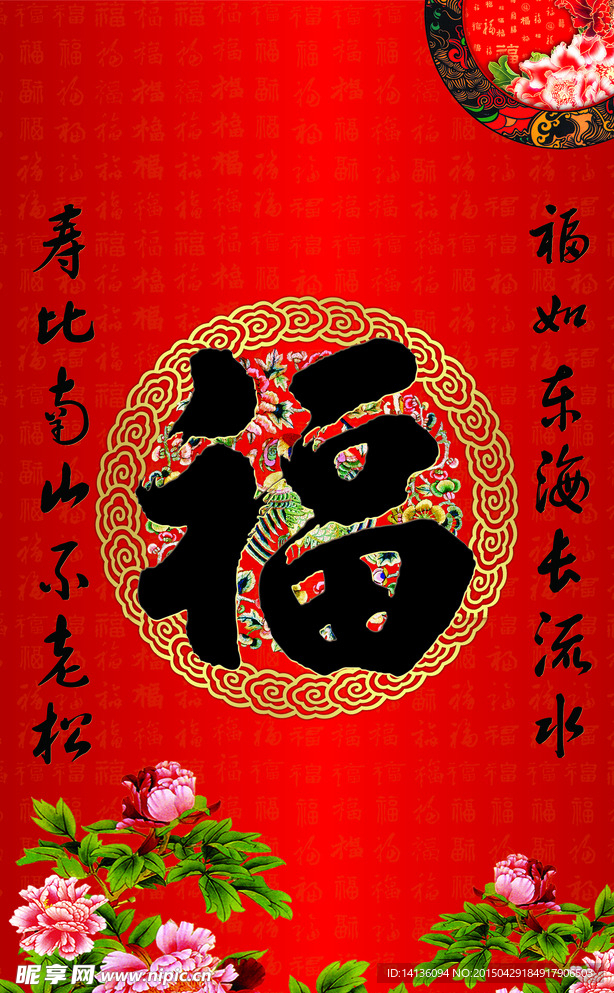 福如东海长流水
福
寿比南山不老松
昵享网 www.nipic.cn
ID:14136094 NO:20150429184917906503